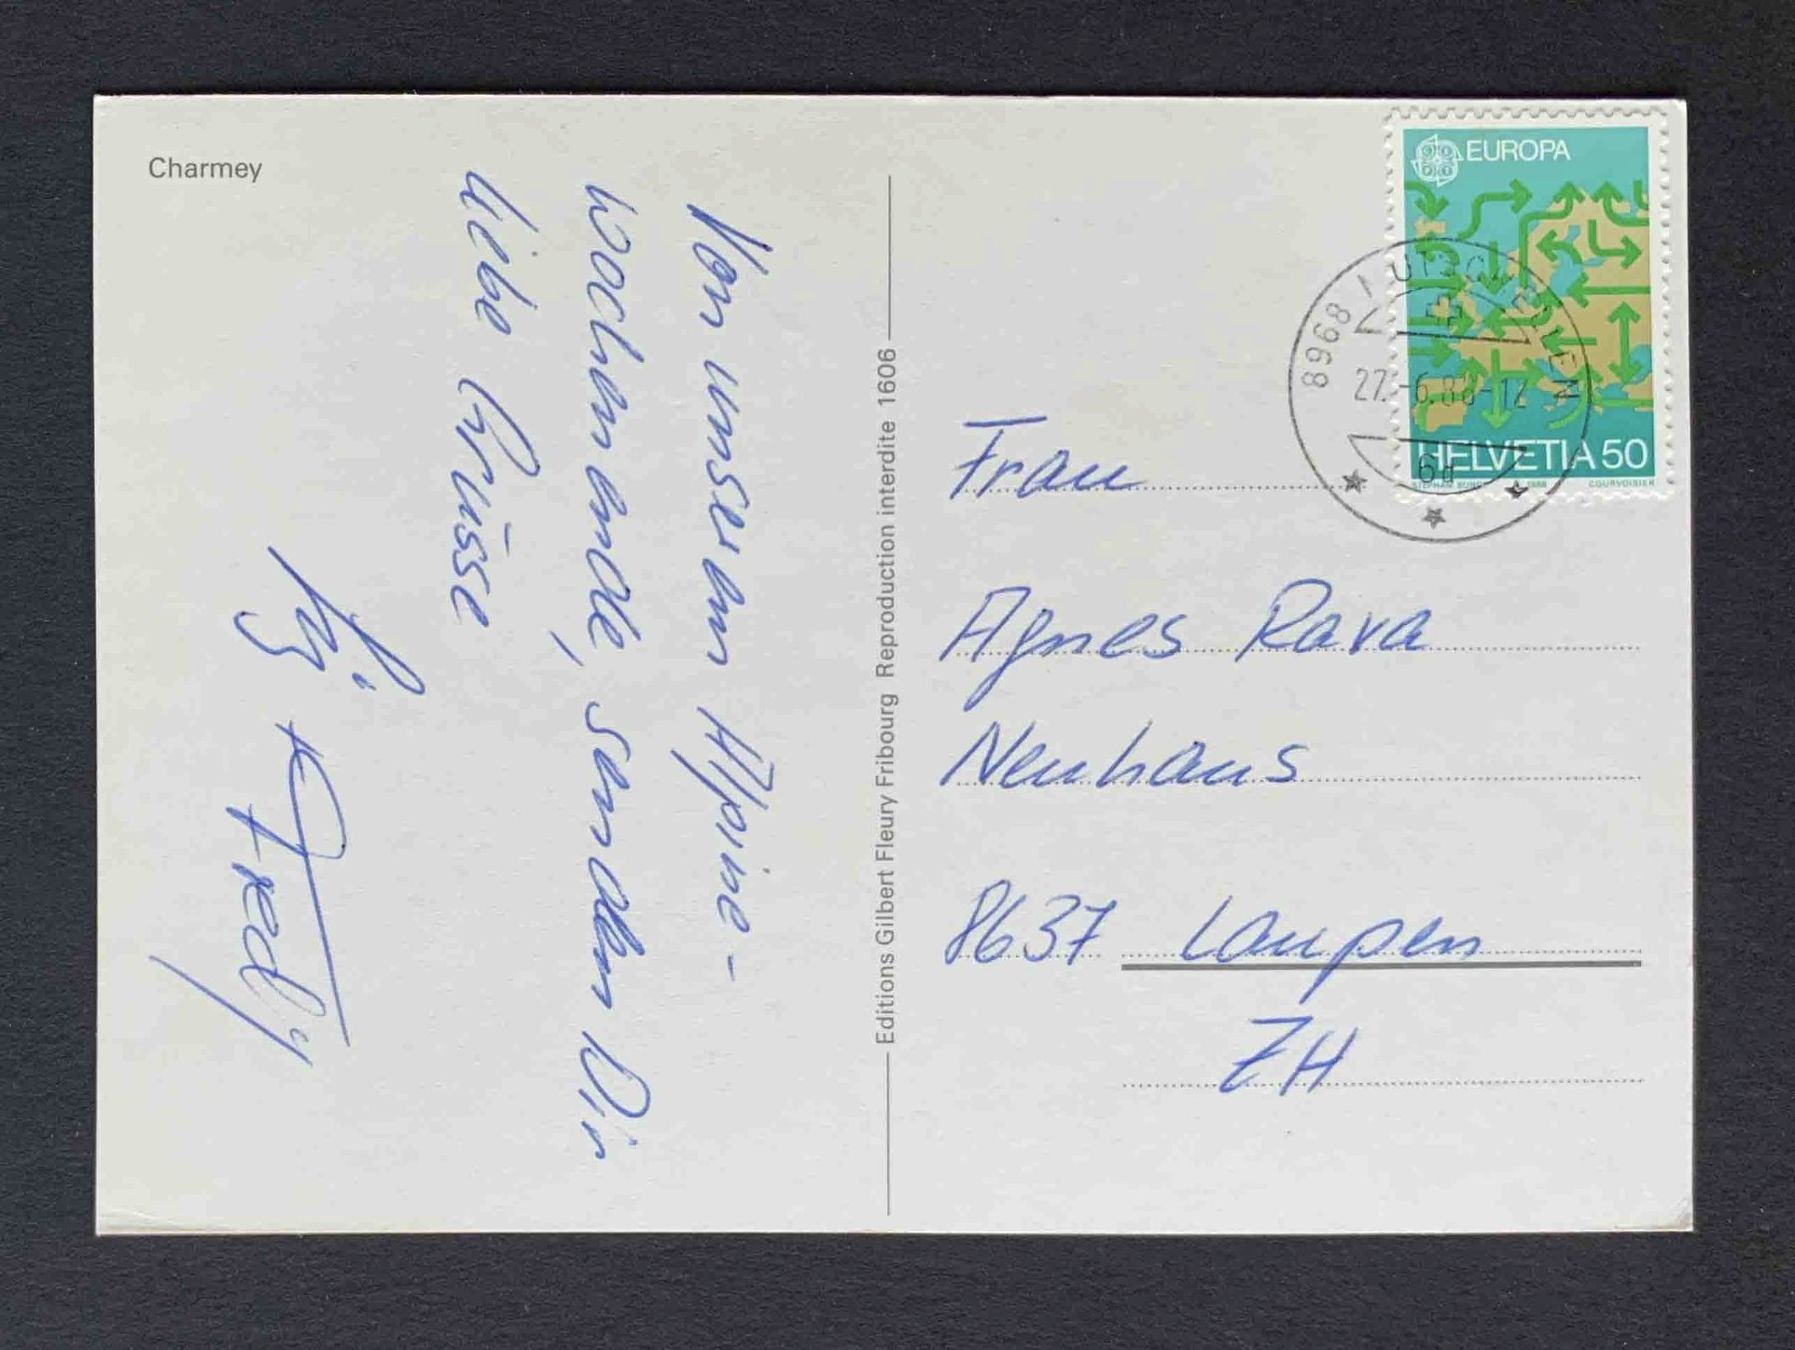 Charmey
Von unserem Alpine-
wochenende, senden Dir
liebe Grüsse
Fredy
Editions Gilbert Fleury Fribourg Reproduction interdite 1606
EUROPA
HELVETIA 50
1988 COURVOISIER
8968
27.-6.88-12
6d
Frau
Agnes Rava
Neuhaus
8637 Laupen
ZH